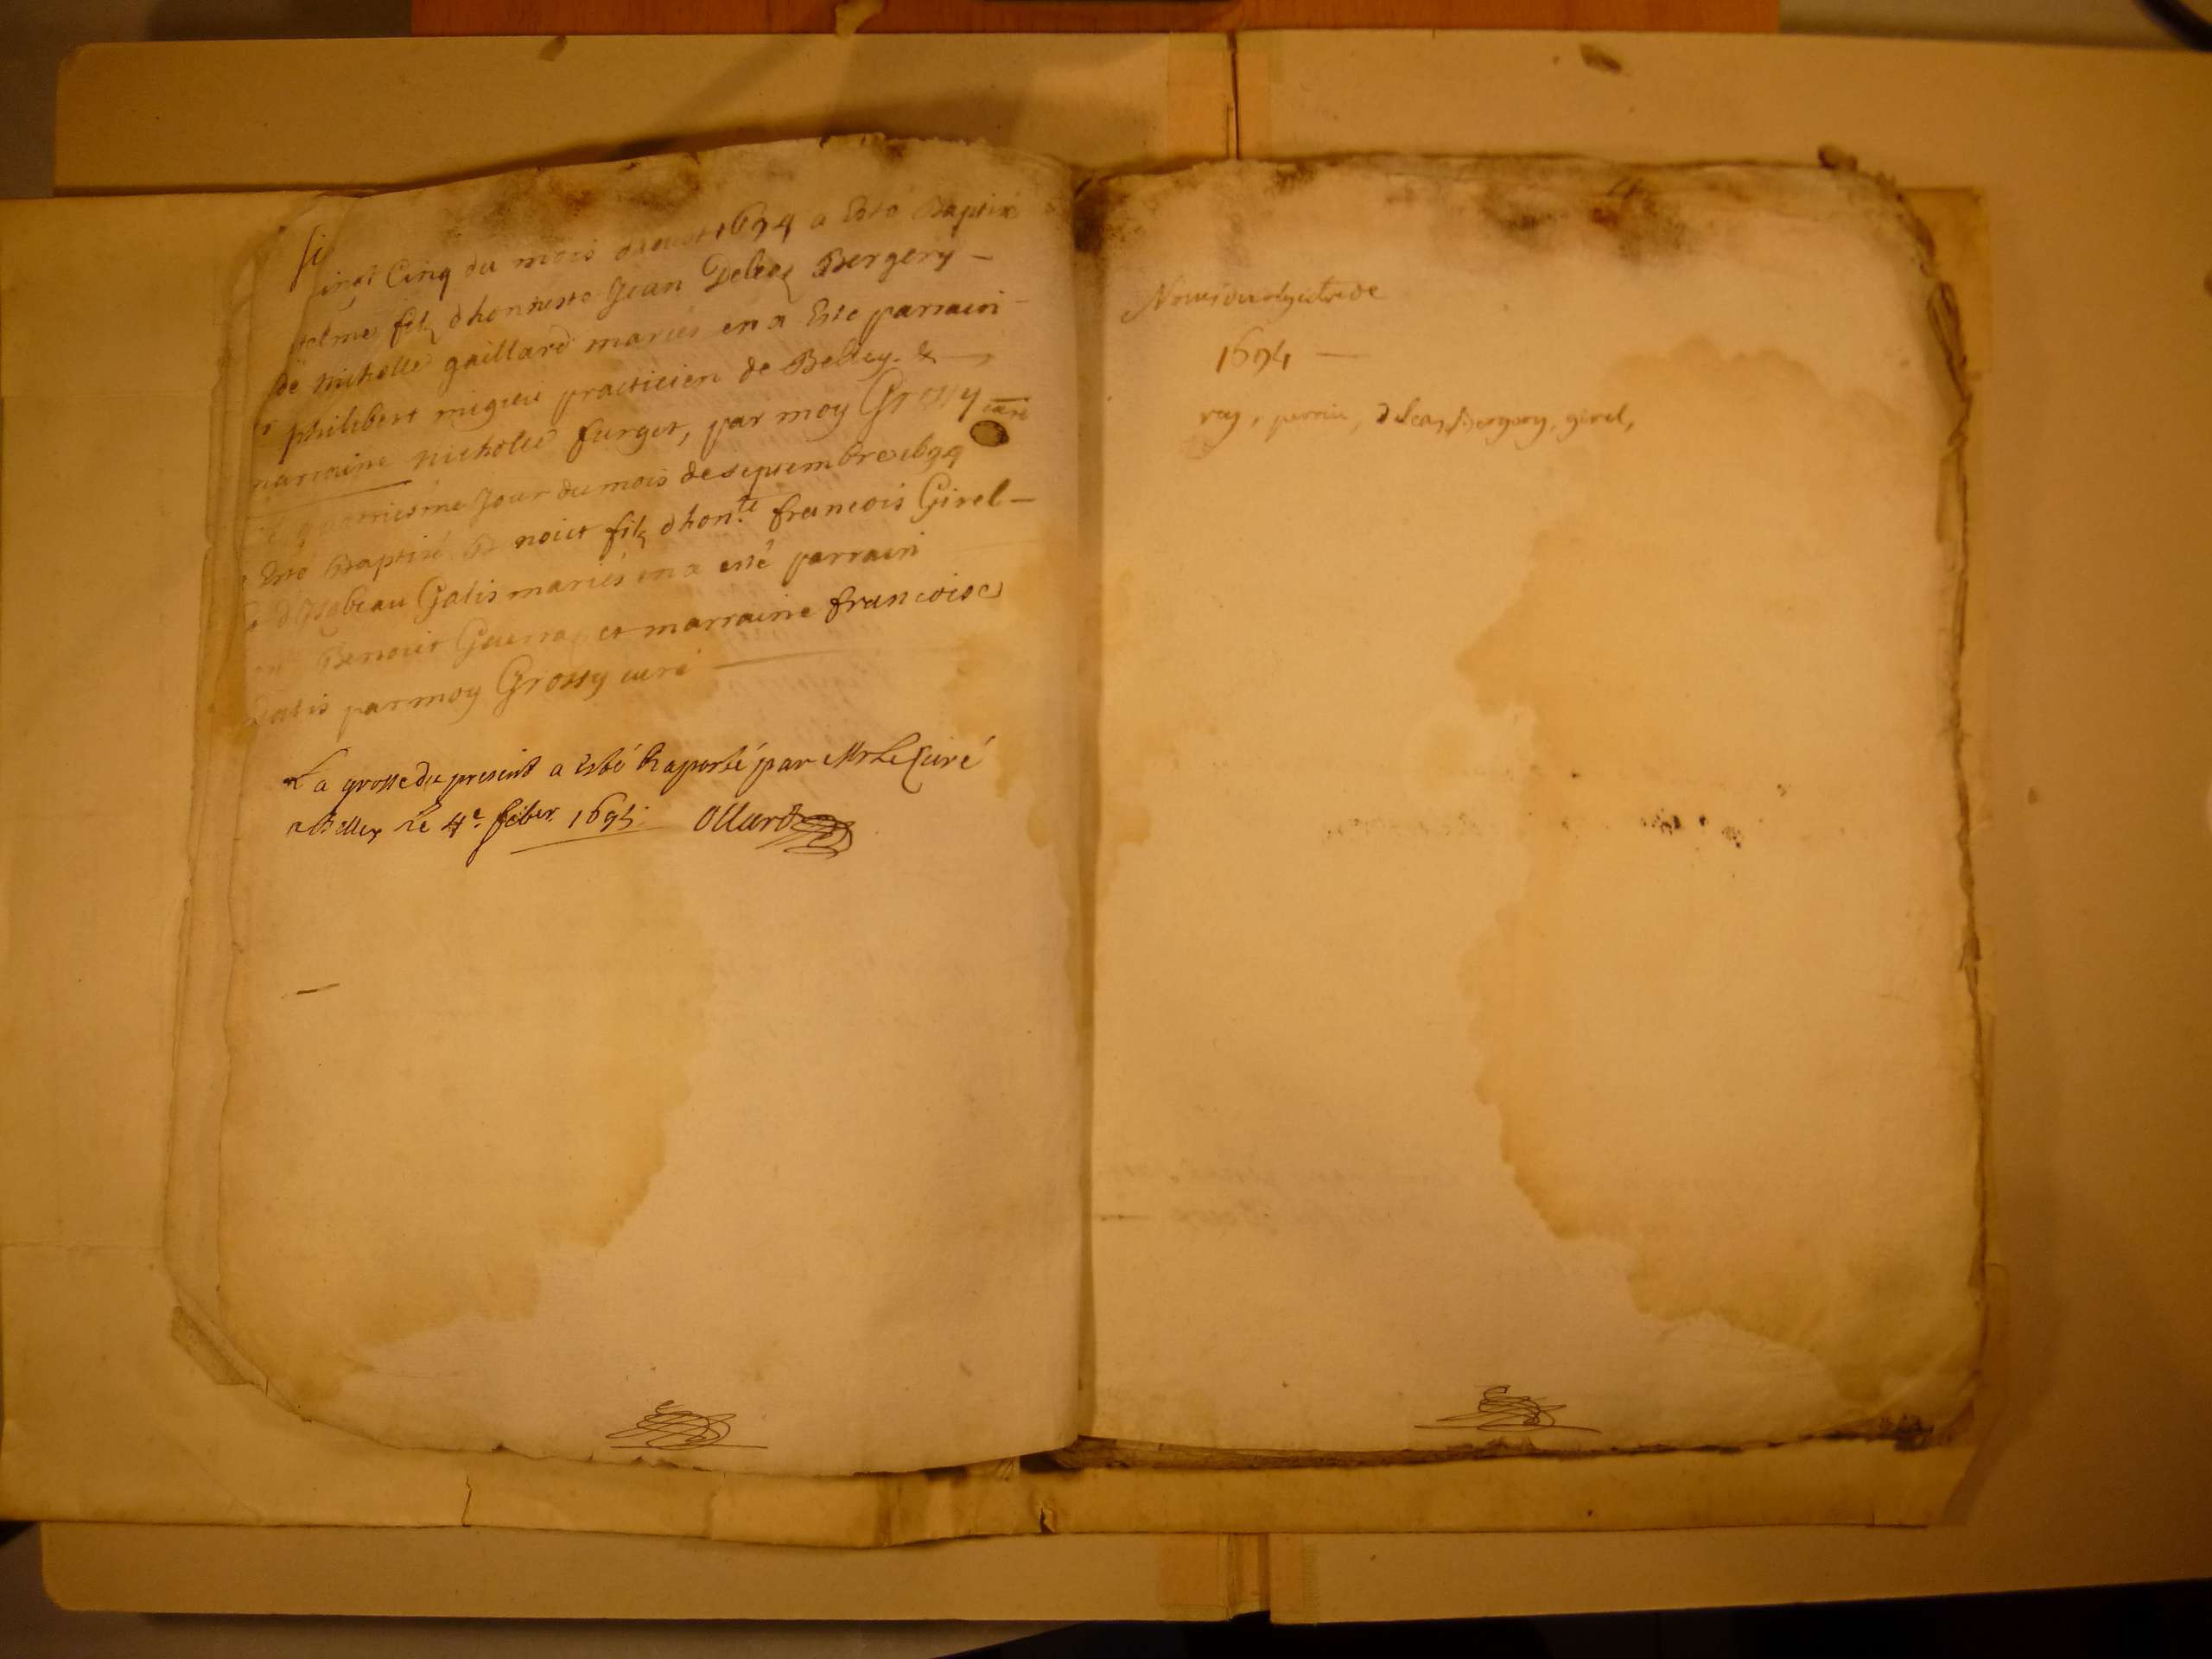 vingt Cinq du mois daoust 1694 a Esté Baptisé
filz dhonneste Jean Deleaz Bergery
de nicholle gaillard mariés en a Esté parrain
philibert migieu practicien de Belley &
marraine nicholle furget, par moy Grossy curé
quatriesme Jour du mois de septembre 1694
Esté Baptisé Benoict filz dhon.te francois Girel
d'Ysabeau Gatis mariés en a esté parrain
Benoict Guerraz et marraine francoise
Gatis par moy Grossy curé
La grosse du present a Esté Raporté par Mr Le Curé
a Belley Le 4e febver 1695. Ollard
Noms du registre de
1694
rey, perrin, deleaz Bergery, girel,